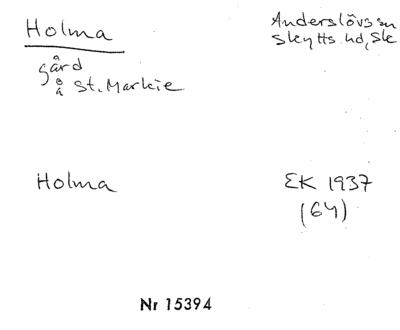 Holma
Anderslövs sn
Skytts hd, Sk
gård
å St. Markie
Holma
EK 1937
(64)
Nr 15394